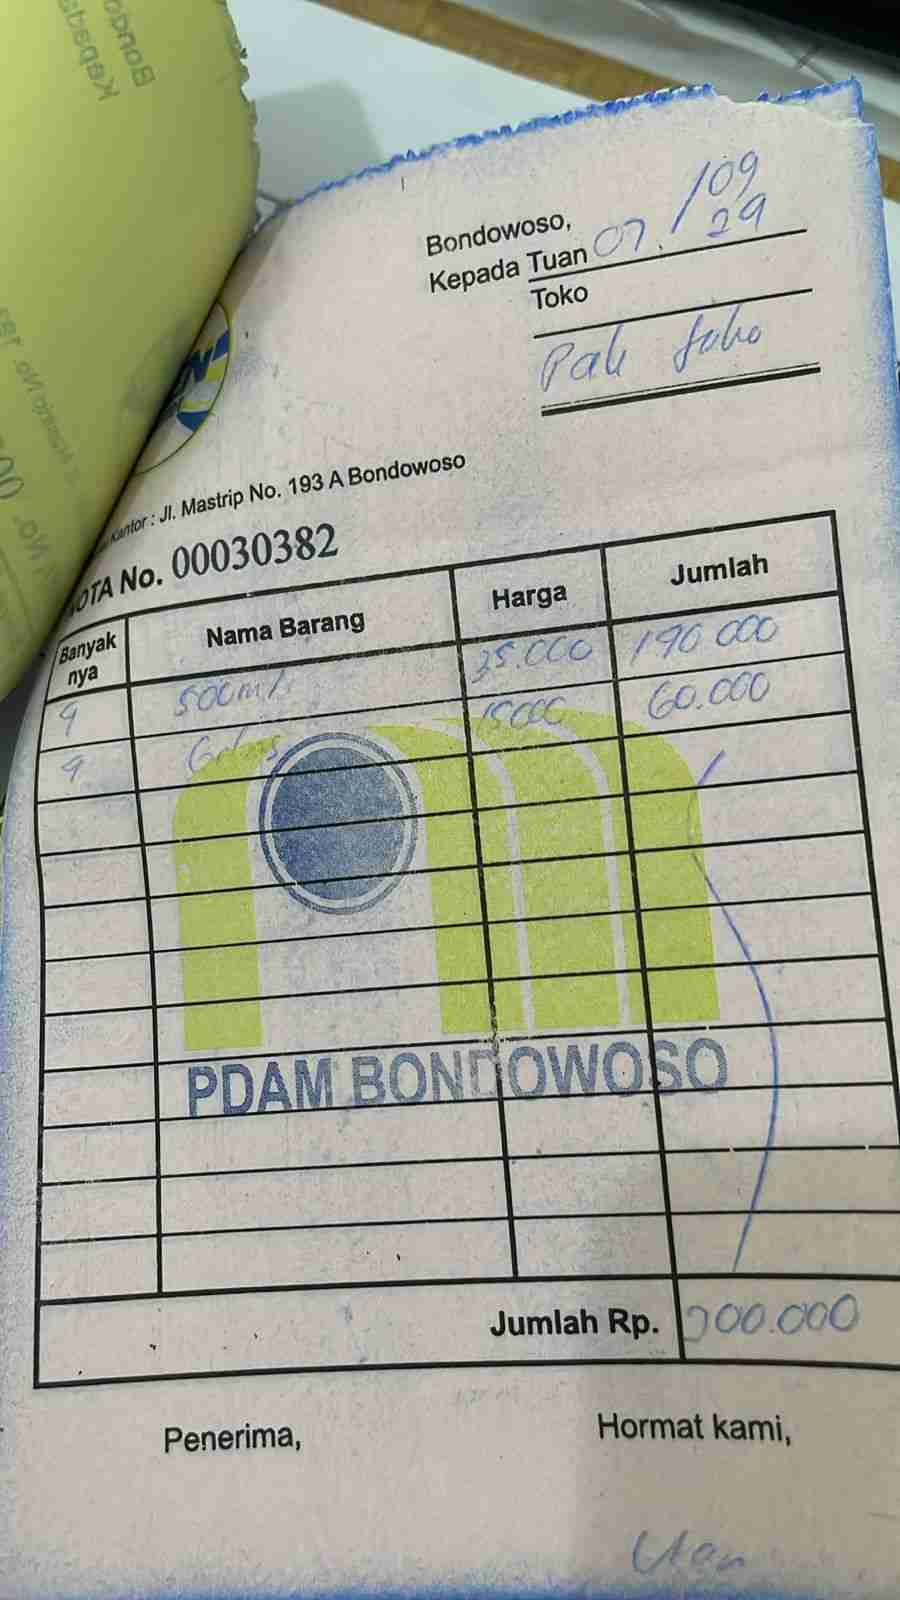 Bondowoso, 07/09
29
Kepada Tuan
Toko
Pak Joko
Kantor : Jl. Mastrip No. 193 A Bondowoso
NOTA No. 00030382
Banyak nya Nama Barang Harga Jumlah
4 500ml 35.000 140.000
4 Gelas 15000 60.000
PDAM BONDOWOSO
Jumlah Rp. 200.000
Penerima, Hormat kami,